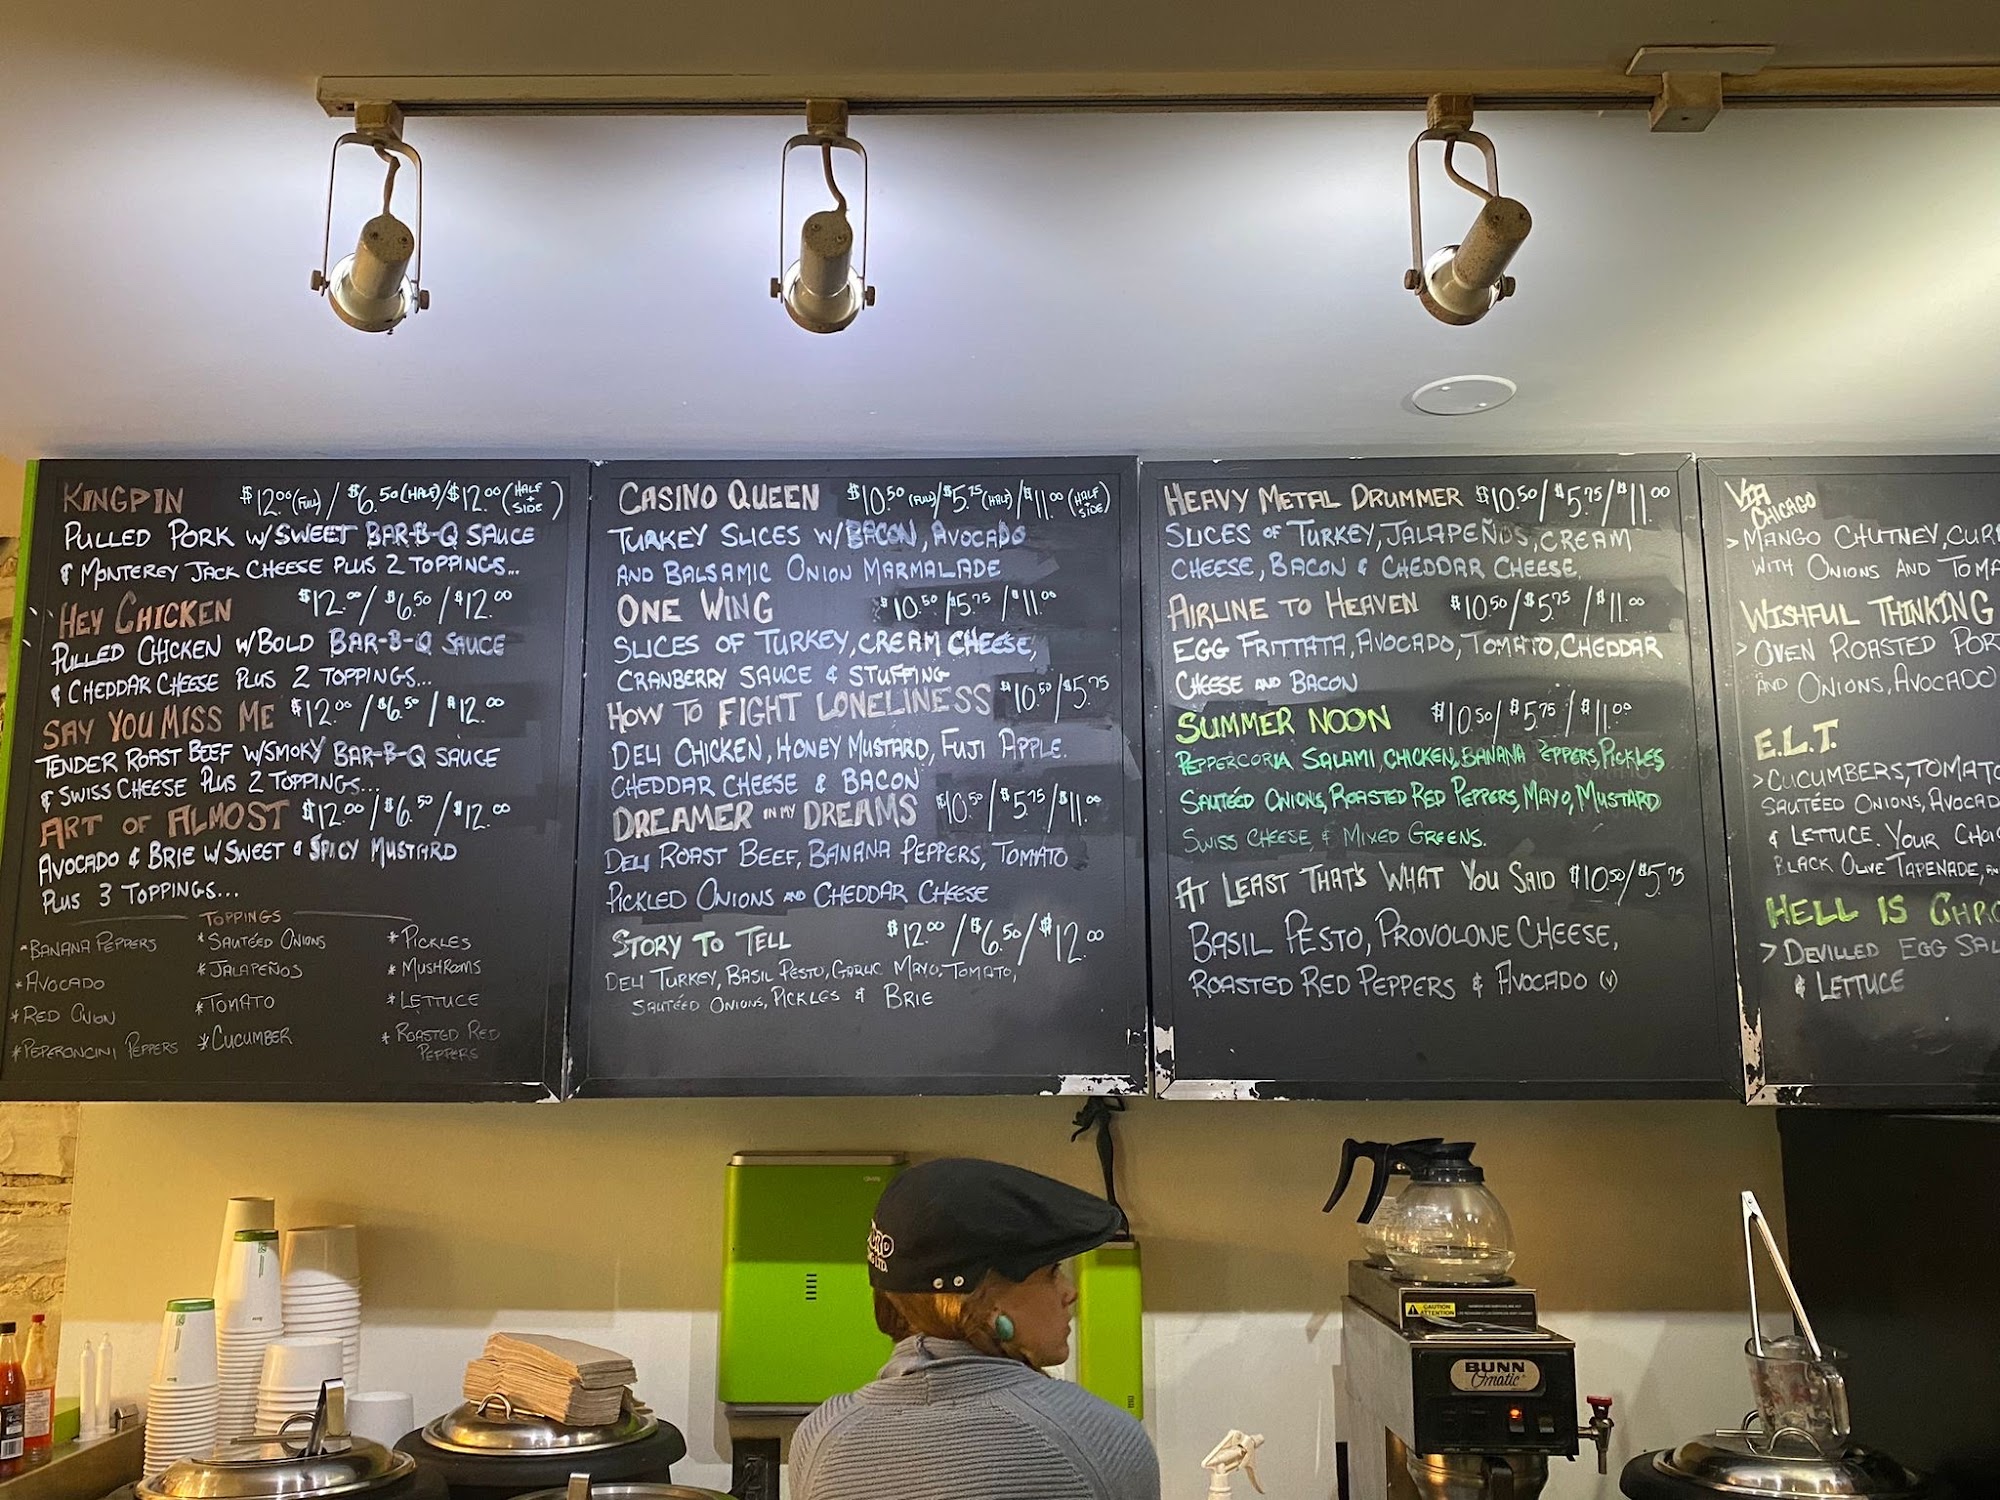 KINGPIN $12.00 (FULL) / $6.50 (HALF) / $12.00 (HALF + SIDE)
PULLED PORK W/ SWEET BAR-B-Q SAUCE
& MONTEREY JACK CHEESE PLUS 2 TOPPINGS...
HEY CHICKEN $12.00 / $6.50 / $12.00
PULLED CHICKEN W/ BOLD BAR-B-Q SAUCE
& CHEDDAR CHEESE PLUS 2 TOPPINGS...
SAY YOU MISS ME $12.00 / $6.50 / $12.00
TENDER ROAST BEEF W/ SMOKY BAR-B-Q SAUCE
& SWISS CHEESE PLUS 2 TOPPINGS...
ART OF ALMOST $12.00 / $6.50 / $12.00
AVOCADO & BRIE W/ SWEET & SPICY MUSTARD
PLUS 3 TOPPINGS...
TOPPINGS
*BANANA PEPPERS
*AVOCADO
*RED ONION
*PEPERONCINI PEPPERS
*SAUTÉED ONIONS
*JALAPEÑOS
*TOMATO
*CUCUMBER
*PICKLES
*MUSHROOMS
*LETTUCE
*ROASTED RED
PEPPERS
CASINO QUEEN $10.50 (FULL) / $5.75 (HALF) / $11.00 (HALF + SIDE)
TURKEY SLICES W/ BACON, AVOCADO
AND BALSAMIC ONION MARMALADE
ONE WING $10.50 / $5.75 / $11.00
SLICES OF TURKEY, CREAM CHEESE,
CRANBERRY SAUCE & STUFFING
HOW TO FIGHT LONELINESS $10.50 / $5.75
DELI CHICKEN, HONEY MUSTARD, FUJI APPLE.
CHEDDAR CHEESE & BACON
DREAMER IN MY DREAMS $10.50 / $5.75 / $11.00
DELI ROAST BEEF, BANANA PEPPERS, TOMATO
PICKLED ONIONS AND CHEDDAR CHEESE
STORY TO TELL $12.00 / $6.50 / $12.00
DELI TURKEY, BASIL PESTO, GARLIC MAYO, TOMATO,
SAUTÉED ONIONS, PICKLES & BRIE
HEAVY METAL DRUMMER $10.50 / $5.75 / $11.00
SLICES OF TURKEY, JALAPEÑOS, CREAM
CHEESE, BACON & CHEDDAR CHEESE.
AIRLINE TO HEAVEN $10.50 / $5.75 / $11.00
EGG FRITTATA, AVOCADO, TOMATO, CHEDDAR
CHEESE AND BACON
SUMMER NOON $10.50 / $5.75 / $11.00
PEPPERCORIA SALAMI, CHICKEN, BANANA PEPPERS, PICKLES
SAUTÉED ONIONS, ROASTED RED PEPPERS, MAYO, MUSTARD
SWISS CHEESE, & MIXED GREENS.
AT LEAST THAT'S WHAT YOU SAID $10.50 / $5.75
BASIL PESTO, PROVOLONE CHEESE,
ROASTED RED PEPPERS & AVOCADO (V)
VIA
CHICAGO
> MANGO CHUTNEY,
WITH ONIONS AND
WISHFUL THINKING
> OVEN ROASTED
AND ONIONS, AVOCADO
E.L.T.
> CUCUMBERS,
SAUTÉED ONIONS,
& LETTUCE. YOUR
BLACK OLIVE TAPENADE,
HELL IS
> DEVILLED EGG
& LETTUCE
CAUTION
ATTENTION
BUNN
Omatic